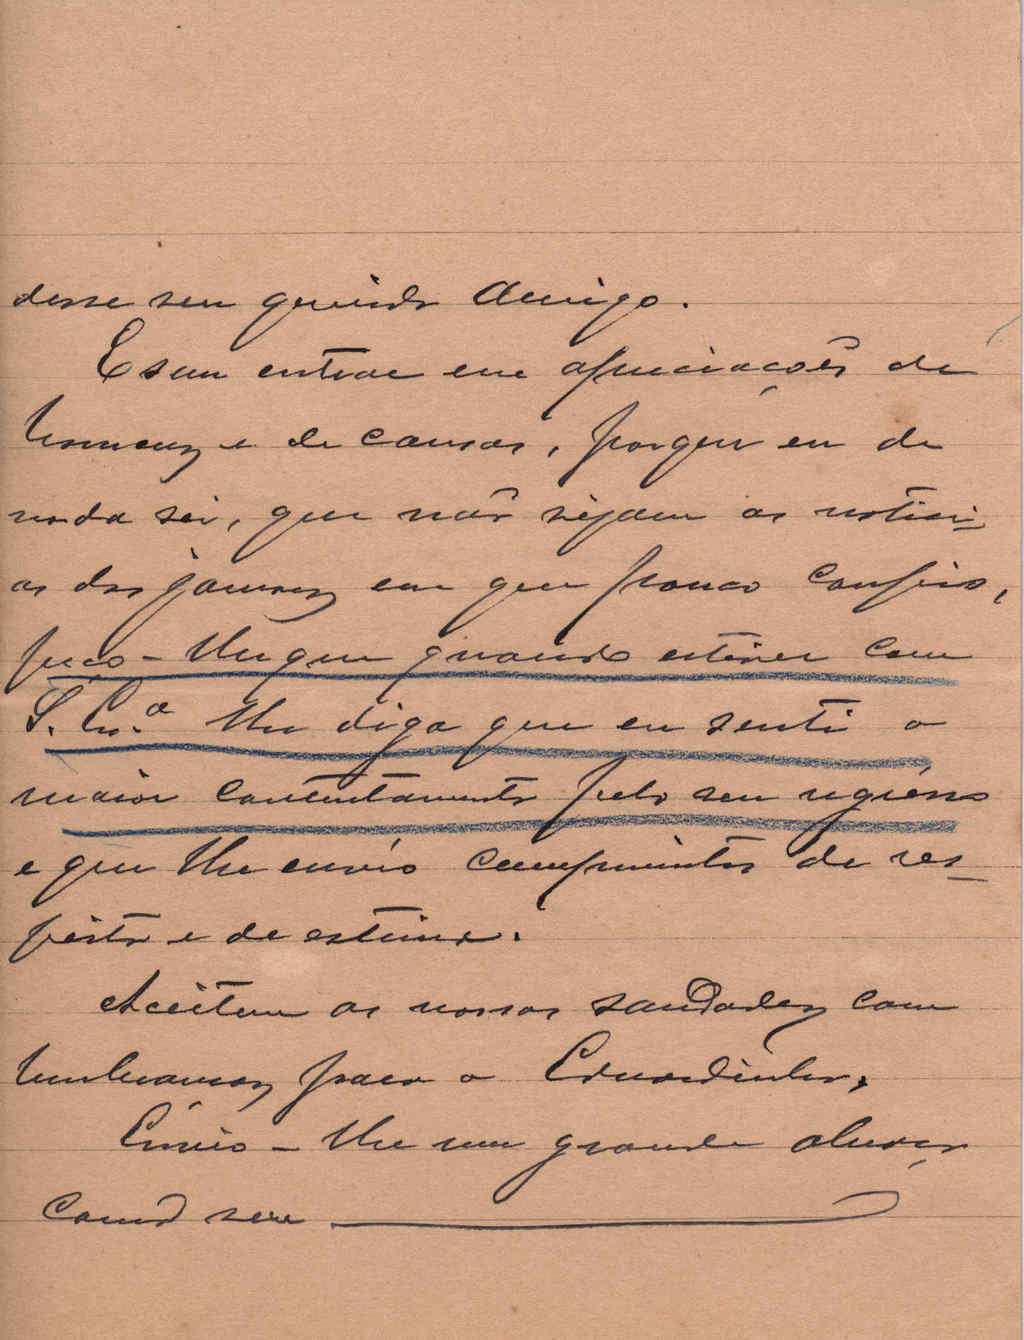 desse seu querido Amigo.
E sem entrar em apreciações de
homens e de causas, porque eu de
nada sei, que não sejam as notici-
as dos jornaes em que pouco confio,
peço-lhe que quando estiver com
S. Ex.ª lhe diga que eu senti o
maior contentamento pelo seu regresso
e que lhe envio cumprimentos de res-
peito e de estima.
Aceitem as nossas saudades com
lembranças para o Eduardinho,
Envio-lhe um grande abraço
como seu